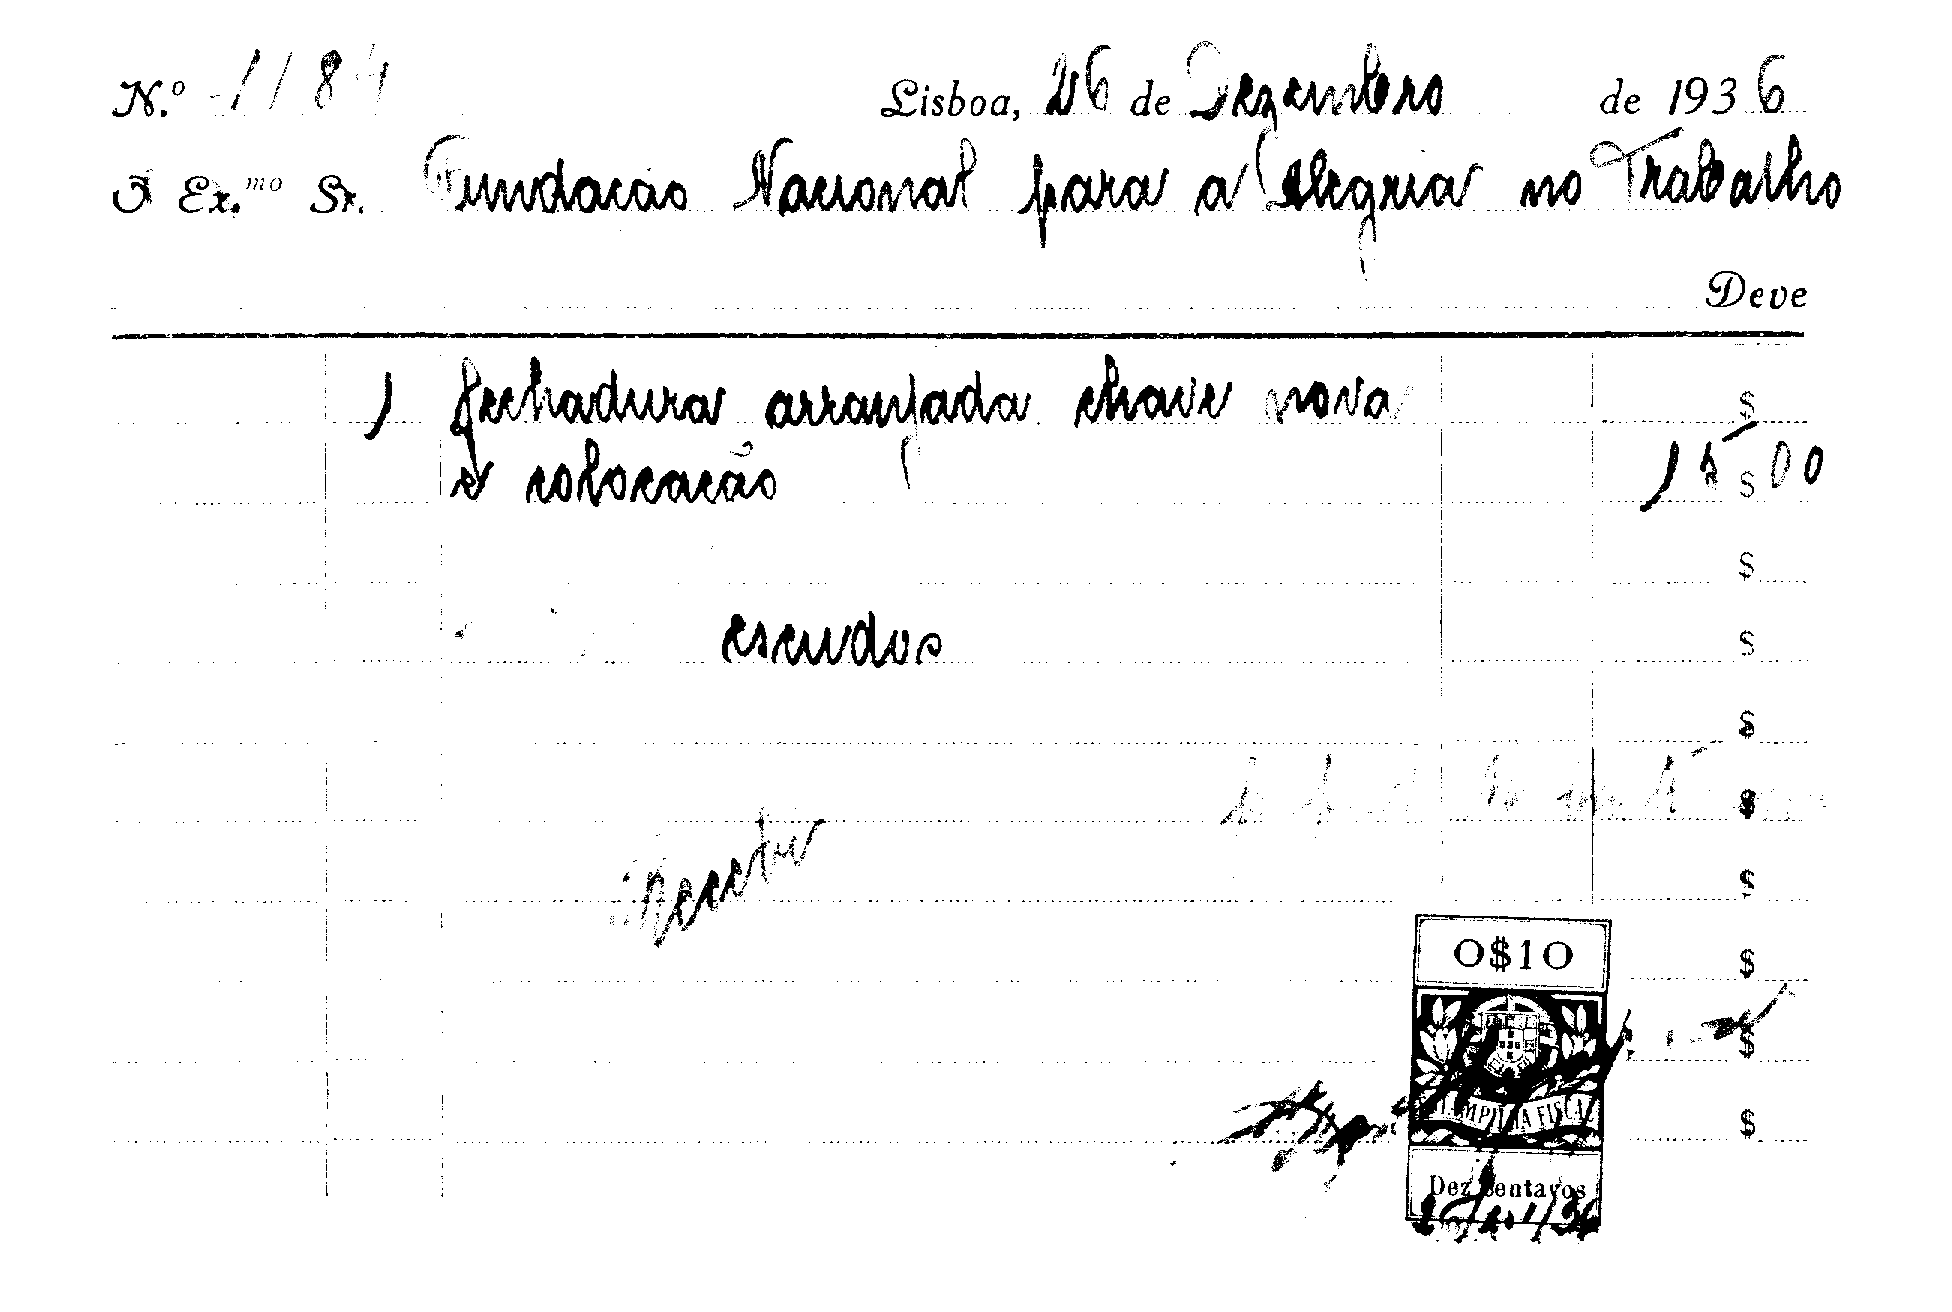 N.º 1184 Lisboa, 26 de Dezembro de 1936
Ex.mo Sr. Fundacao Nacional para a Alegria no Trabalho
Deve
1 fechadura arranjada chave nova $
e colocacão 15$00
$
escudos $
$
$
Recebi $
0$10
$
$
ESTAMPILHA FISCAL
$
Dez Centavos